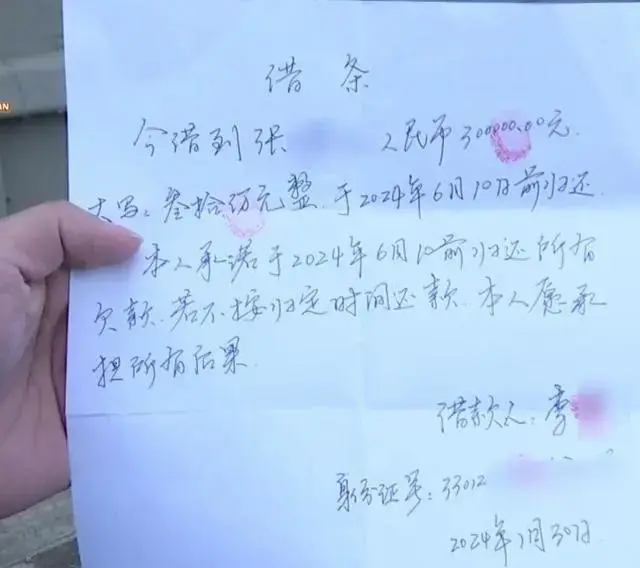 借条
今借到张 人民币300000.00元.
大写:叁拾万元整.于2024年6月10日前归还.
本人承诺于2024年6月10前归还所有
欠款.若不按归定时间还款.本人愿承
担所有后果.
借款人:李
身份证号:33012
2024年1月30日.
AN